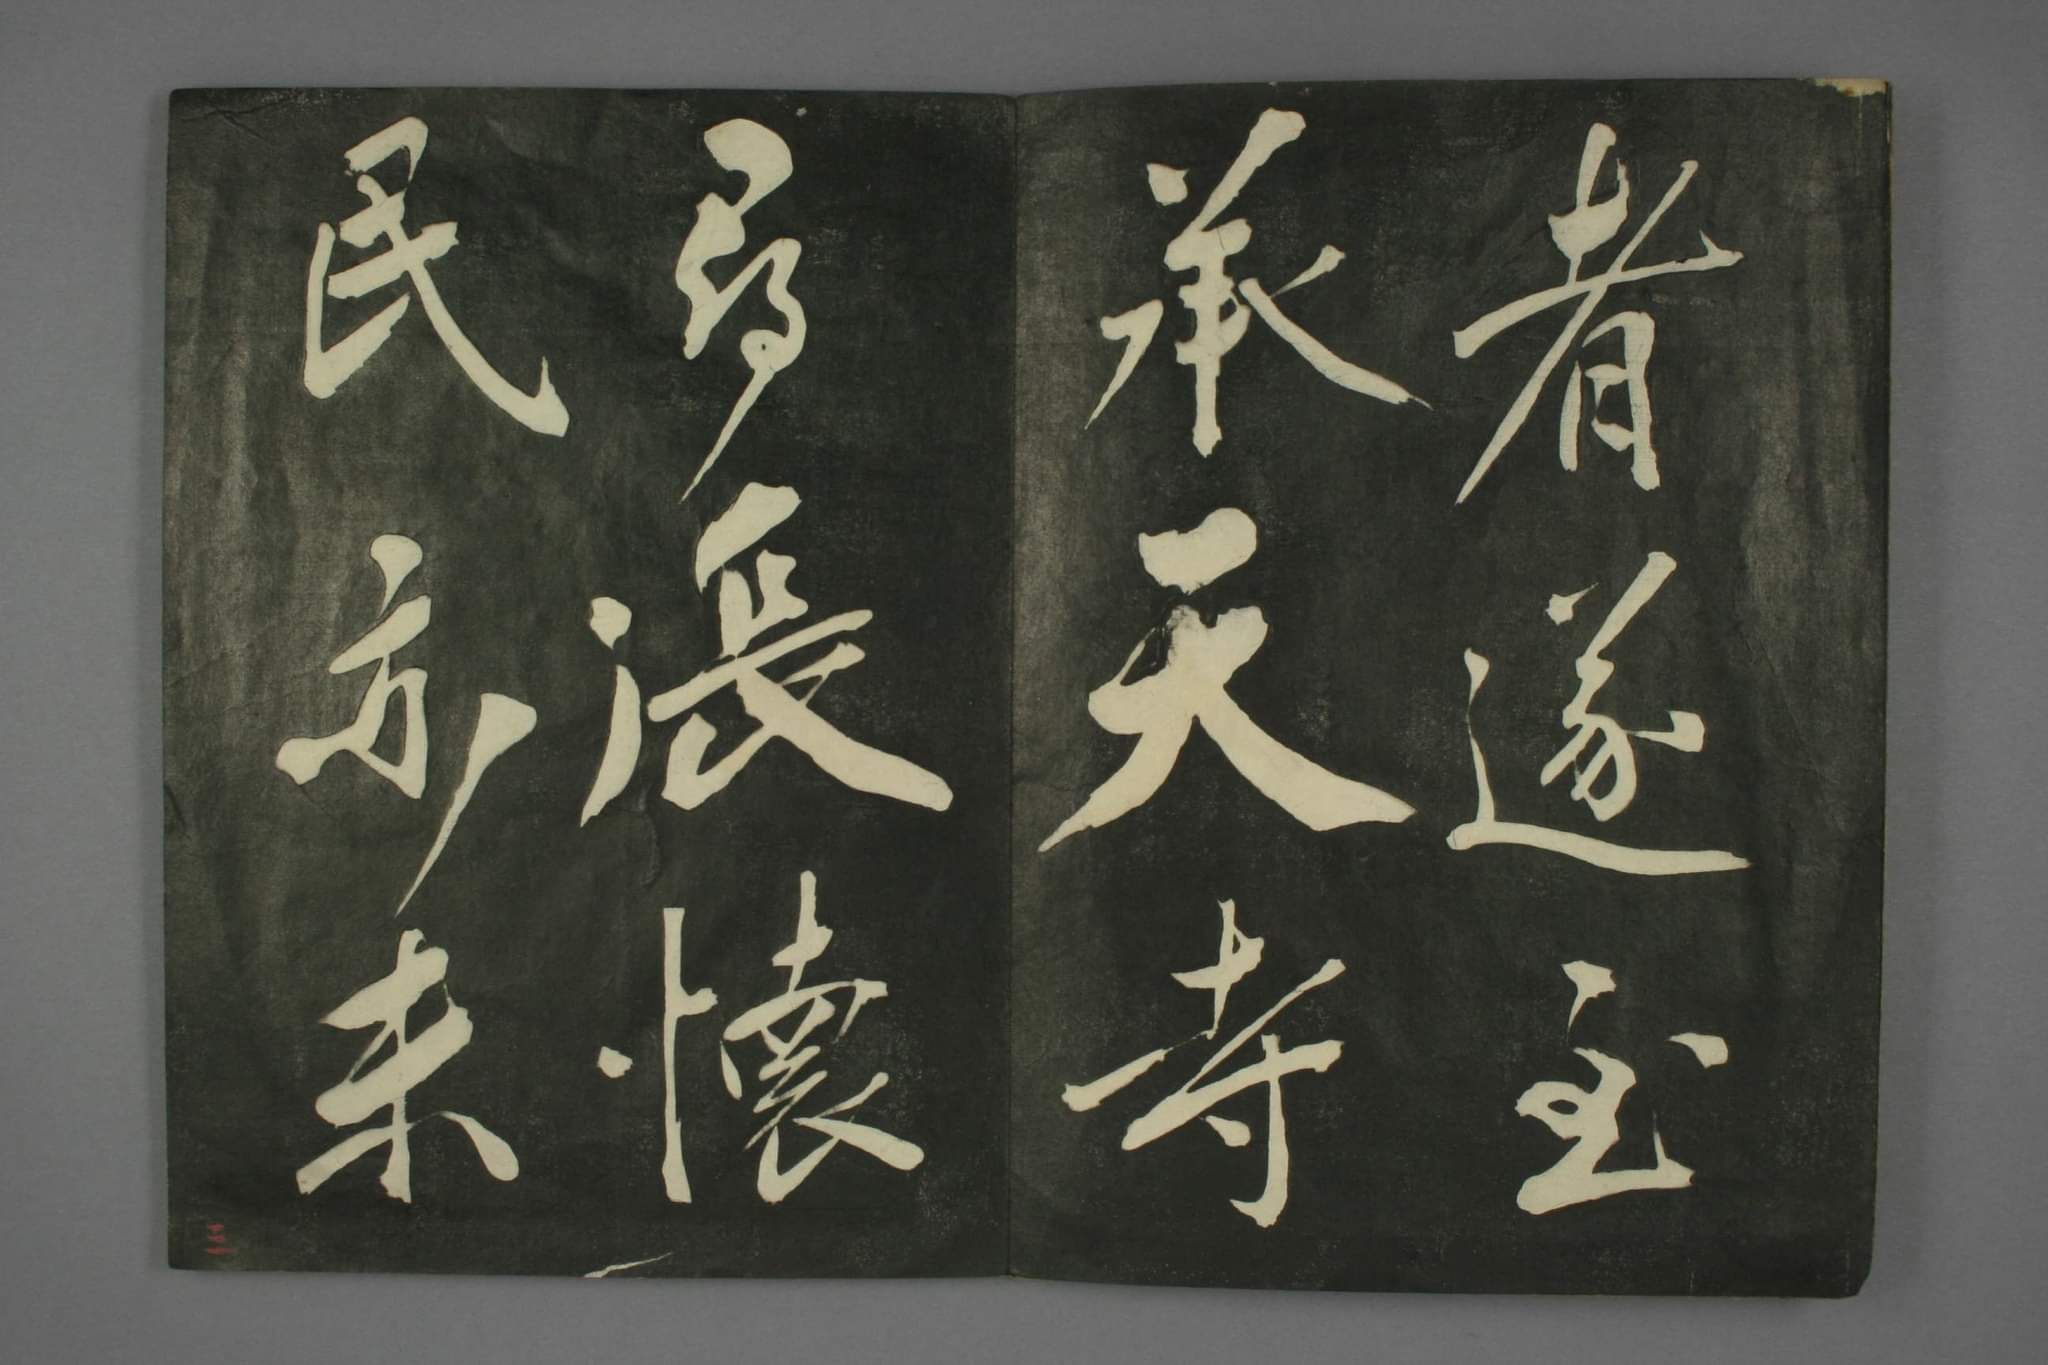 者遂至
承天寺
尋張懷
民亦未